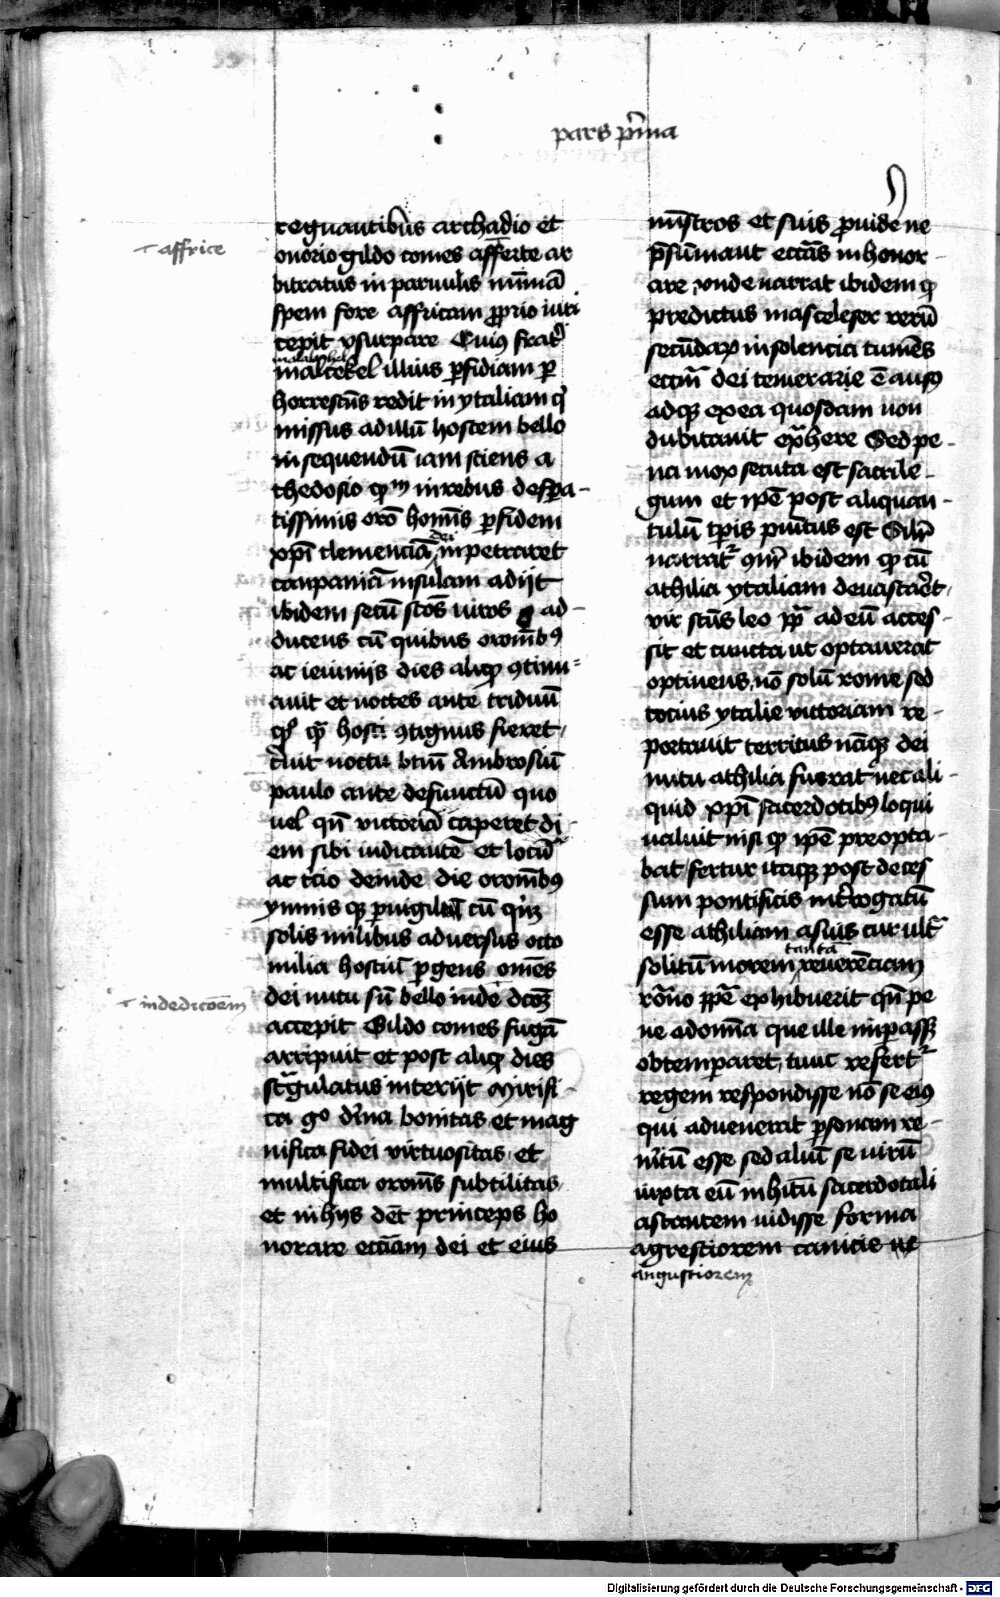 pars p̄ima
regnantibus archadio et
onorio gildo comes affr̄te ar
affrice
bitratus in paruulis nimiā
spem fore affricam ꝓprio iuri
cepit vsurpare Cuiꝰ frat̄
malaschel
mascekel illius ꝑfidiam ꝑ
horrescēs redit in ytaliam qͥ
missus ad illū hostem bello
insequendū iam sciens a
thedosio qm̄ in rebus despa-
tissimis orō homīs ꝑ fidem
xpī clemenciā dei inpetraret
canpaniā insulam adijt
ibidem secū scōs uiros ad-
ducens cū quibus oromībꝰ
ac ieiunijs dies aliqꝫ ꝯtinu=
auit et noctes ante triduū
qͥ hosti ꝯtignus fieret
noctu btm̄ Ambrosiū
paulo ante defunctū quo
uel qn̄ victoriā caperet di-
em sibi iudicantē et locū
ac tcio deinde die oromībꝰ
ymnis qꝫ ꝑuigilal cū qͥnqꝫ
solis milibus aduersus octo
milia hostiū ꝑgens omēs
dei nutu sū bello inde dcōꝫ
indedicoēm
accepit Gildo comes fugā
arripuit et post aliqꝫ dies
stͣngulatus interijt Mirifi-
ca gͦ dīna bonitas et mag
nifica fidei virtuositas et
multifica oromīs subtilitas
et in hijs dēt princeps ho
norare ecciam dei et eius
mīstros et suis ꝓuide ne
p̄sūmant ecc̄as inhonor-
are vnde narrat ibidem ꝙ
predictus mascelefer rerū
secūdarꝫ insolencia tumēs
ecc̄m dei temerarie ē ausꝰ
adqꝫ ex ea quosdam non
dubitauit exͣhere Sed pe-
na mox secuta est sacrile-
gum et ip̄e post aliquan-
tulū tꝑis puītus est Silr̄
narratᷣ ibidem ꝙ cū
athilia ytaliam deuastar̄et
vir scūs leo pp̄ ad eū acces-
sit et cuncta ut optauerat
optinens nō solū rome sed
tocius ytalie victoriam re-
portauit territus nāqꝫ dei
nutu athilia fuerat nec ali-
quid xpī sacerdotibꝰ loqui
ualuit nisi ꝙ ip̄e preopta-
bat fertur itaqꝫ post deces
sum pontificis int̄rogatū
esse athiliam a suis cur ultͣ
solitū morem tantā reuerēciam
rōno pp̄e exhibuerit qn̄ pe
ne ad omīa que ille inꝑassꝫ
obtemꝑaret, tunc refertᷣ
regem respondisse nō se eiꝰ
qui aduenerat ꝑsonam re-
uītum esse sed aliū se uirū
iuxta eū in hītū sacerdotali
astantem uidisse forma
agrestiorem canicie
angustiorem
Digitalisierung gefördert durch die Deutsche Forschungsgemeinschaft - DFG